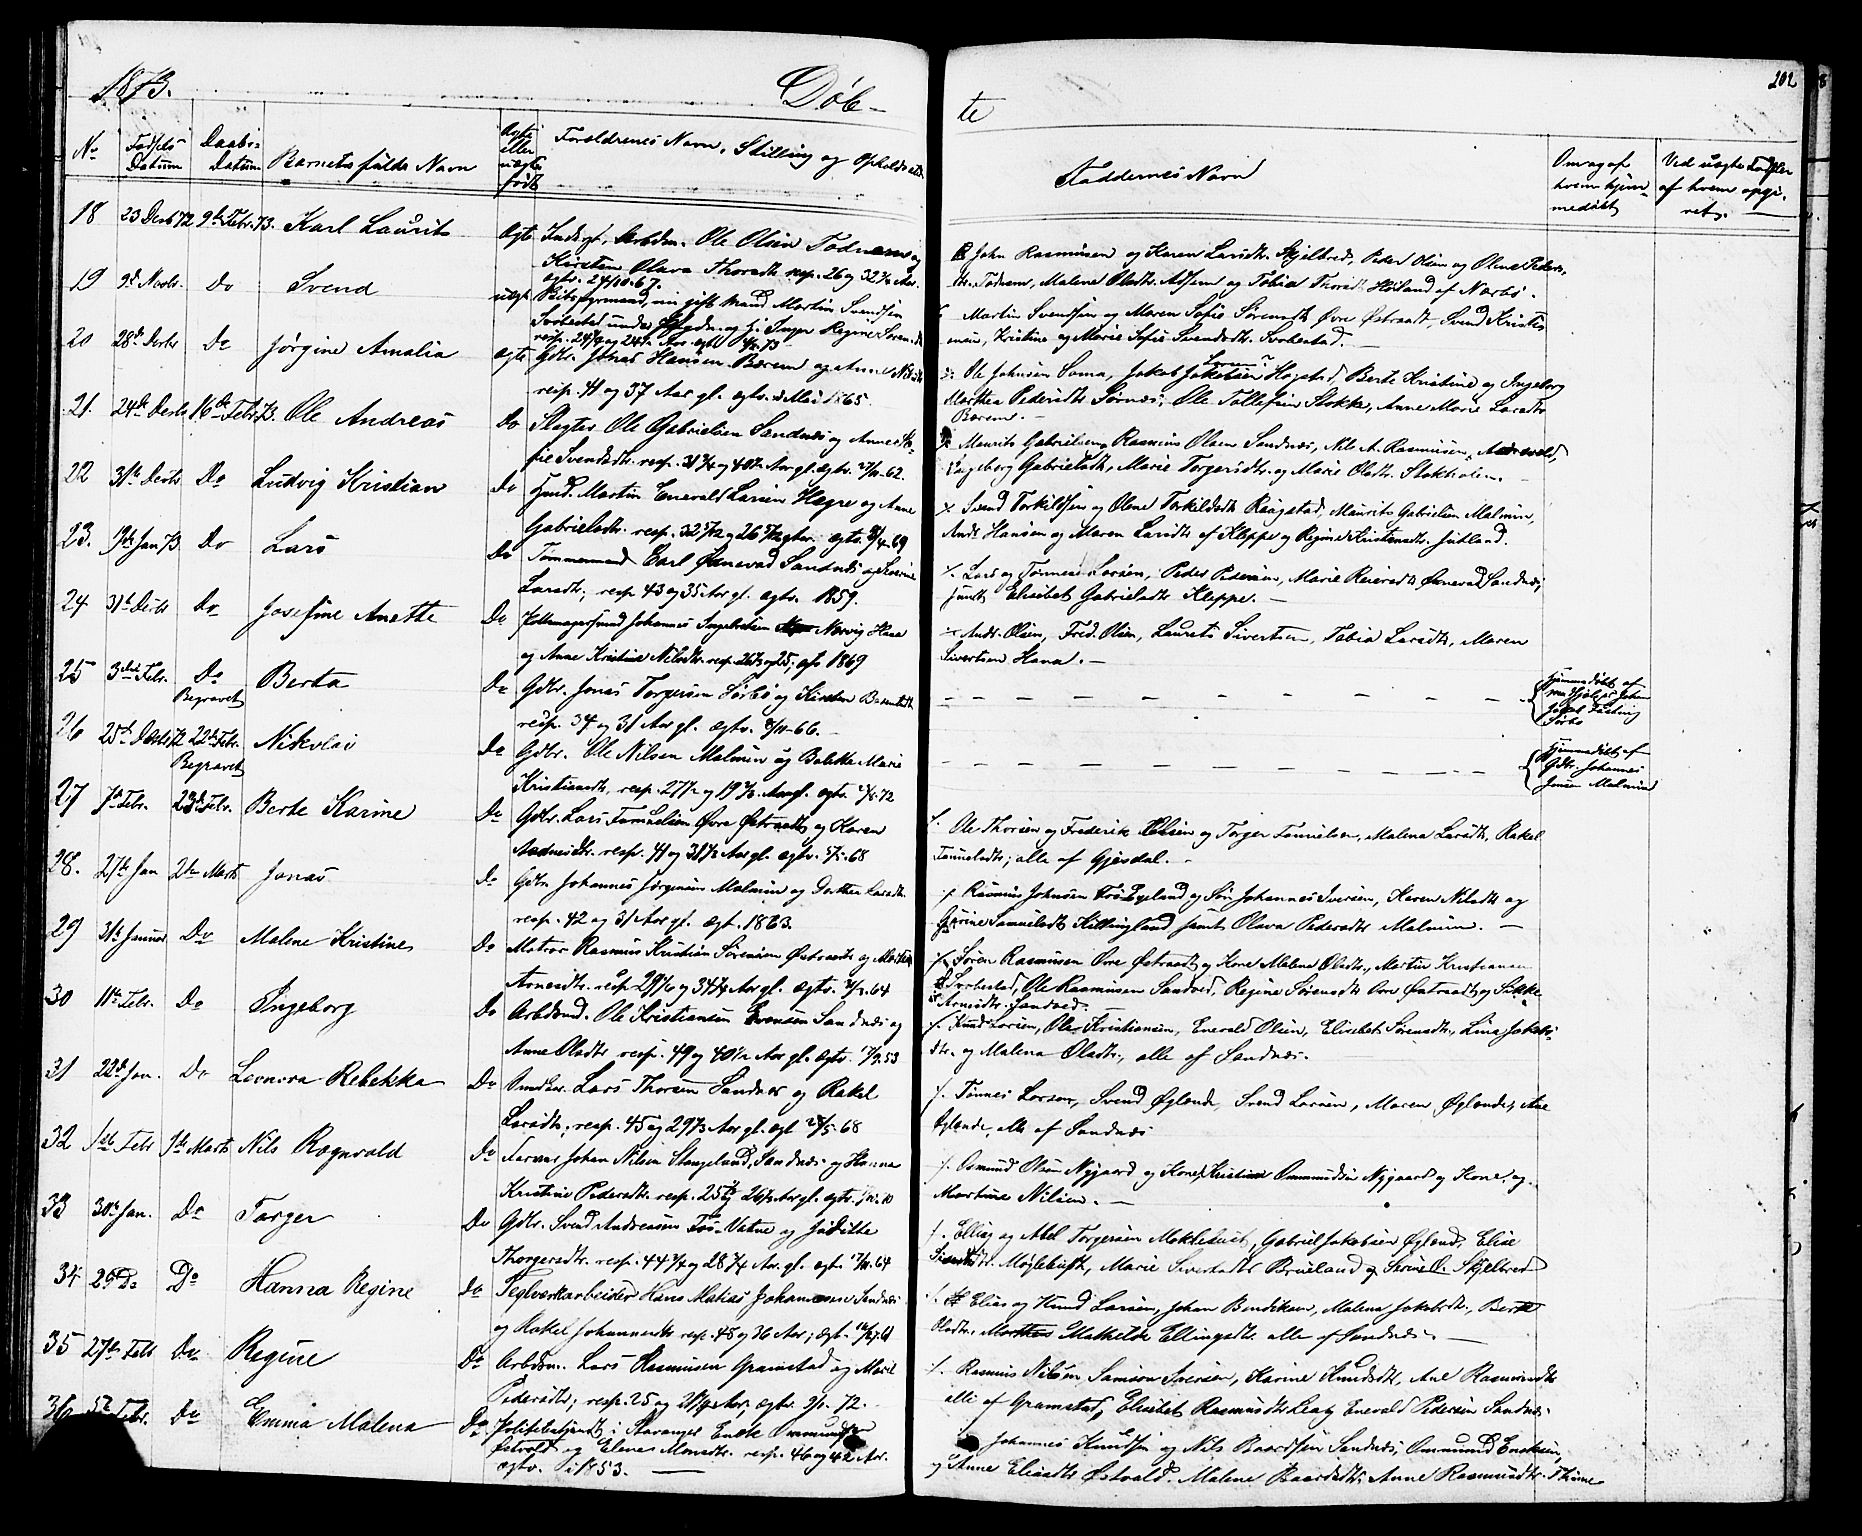 1873.
Döb-
te
202
No
Fødsels-
Datum
Daabs-
Datum
Barnets fulde Navn
Ægte
eller
uægte
født
Forældrenes Navn, Stilling og Opholdssted
Faddernes Navn
Om og af
hvem hjem-
medøbt
Ved uægte Fødsler
af hvem opgi-
vet.
18 23 Decb 72 9de Febr. 73. Karl Laurits Ægte Ole Olsen Tødnem og
Kirsten Olava Thorsdtr. resp. 26 og 32
ægtv. 24/10-67.
John Rasmussen og Karen Larsdtr. Skjelbred, Peder Olsen og Olene Peders-
dtr. Tødnem, Malene Olsdtr. og Tobia Thorsdtr. Høiland af Nærbø.
19 9de Novbr. Do Svend uægt. gift Mand Martin Svendsen
Svebestad og Regine Sørensdtr.
Martin Svendsen og Maren Sofie Sørensdtr. Øvre Østraadt, Svend Kristi-
ansen, Kristine og Marie Sofie Svendsdtr. Svebestad.
20 28de Decbr Do Jørgine Amalia ægte Gdbr. Jonas Hansen Bærem og Anne Nilsdtr
resp. 41 og 37 Aar gl. ægtv. i Mai 1865.
Ole Johnsen Soma, Jakob Larsen Høgstad, Berte Kristine og Ingeborg
Marthea Pedersdtr Sørnæs, Ole Tollefsen Stokke, Anne Marie Larsdtr
Bærem.
21. 24de Decbr 16de Febr. 73. Ole Andreas Do Slagter Ole Gabrielsen Sandnæs og Anne So-
fie Svendsdtr. resp. 31 3/4 og 40 Aar gl. ægtv. 62.
Maurits Gabrielsen, Rasmus Olsen Sandnæs, Nils A. Rasmussen,
Ingeborg Gabrielsdtr, Marie Torgersdtr. og Marie Olsdtr. Stokholm.
22 31te Decbr Do Ludvig Kristian Do Martin Enevald Larsen Hægre og Anne
Gabrielsdtr. resp. 32 5/12 og 26 5/12 ægtv. 69
Svend Torkildsen og Olene Torkildsdtr Raagstad, Maurits Gabrielsen Malmin,
Andr. Hansen og Maren Larsdtr af Kleppe og Regine Kristensdtr. Jutland.
23. 9de Jan 73 Do Lars Do Tømmermand Carl Ønevad Sandnæs og Severine
Larsdtr; resp. 43 og 35 Aar gl. ægtv. 1859.
Lars og Tønnes Larsen, Peder Pedersen, Marie Reiersdtr Ønevad Sandnæs,
samt Elisabet Gabrielsdtr Kleppe.
24 31te Decbr Do Josefine Anette Do Pottemagersvend Johannes Ingebretsen Norvig Hana
og Anne Kristine Nilsdtr. resp. 26 1/2 og 25; ægtv 1869
Andr. Olsen, Fred. Olsen, Laurits Sivertsen, Tobia Larsdtr, Maren
Sivertsen Hana.
25 3die Febr. Do
Begravet
Berta Do Gdbr. Jonas Torgersen Sørbø og Kirsten
resp. 34 og 31 Aar gl. ægtv. 66.
Hjemmedøbt af
Sørbø
26 25de Decbr 72 22de Febr.
Begravet
Nikolai Do Gdbr. Ole Nilsen Malmin og Bolette Marie
Kristiansdtr. resp. 27 og 19 Aar gl. ægtv. 72
Hjemmedøbt af
Gdbr. Johannes
Jensen Malmin
27 7de Febr. 23de Febr. Berte Karine Do Gdbr. Lars Tønnesen Øvre Østraadt og Karen
Aadnesdtr. resp. 41 og 31 1/2 Aar gl. ægtv. 68
Ole Thorsen og Frederik Olsen og Torger Tønnesen, Malena Larsdtr, Rakel
alle af Gjesdal.
28. 27de Jan 2den Marts Jonas Do Gdbr. Johannes Jørgensen Malmin og Dorthea Larsdtr.
resp. 42 og 31 Aar gl. ægt. 1863.
Rasmus Johnsen og Søn Johannes Iversen, Karen Nilsdtr og
Gurine Samuelsdtr Kyllingland samt Olava Pedersdtr Malmin.
29 31te Januar Do Malene Kristine Do Matros Rasmus Kristian Sørensen Østraadt og
Arnesdtr. resp 29 1/6 og 34 3/4 Aar gl. ægtv. 64
Søren Rasmussen Øvre Østraadt og Kone Malene Olsdtr., Martin Kristiansen
Svebestad, Ole Rasmussen Sandved, Regine Sørensdtr Øvre Østraadt og
Arnesdtr. Sandved.
30 11te Febr. Do Ingeborg Do Arbdmd. Ole Kristiansen Evensen Sandnæs og
Anne Olsdtr resp. 49 og 40 1/2 Aar gl. ægtv. 53
Knud Larsen, Ole Kristiansen, Enevald Olsen, Elisabet Sørensdtr., Lina Jakobs-
dtr. og Malena Olsdtr., alle af Sandnæs.
31 22de Jan. Do Leonora Rebekka Do Lars Thorsen Sandnæs og Rakel
Larsdtr; resp. 45 og 29 Aar gl. ægt 68
Tønnes Larsen, Svend Øglænd, Svend Larsen, Maren Øglænd, Ane
Øglænd, alle af Sandnæs
32 1ste Febr 9de Marts Nils Ragnvald Do Farver Johan Nilsen Stangeland, Sandnæs og Hanna
Kristine Pedersdtr. resp. 25 og 26 Aar gl. ægtv.
Osmund Olsen Nygaard og Kone, Kristian Ommundsen Nygaard og Kone, og
Martine Nilsen.
33 30te Jan. Do Torger Do Gdbr. Svend Andreasen Fos-Vatne og Juditta
Thorgersdtr. resp. 44 3/4 og 28 3/4 Aar. gl. ægt. 64
Elling og Abel Torgersen Møklebust, Gabriel Jakobsen Øglend, Elise
Møglebust, Marie Sivertsdtr Brueland og Serine O. Skjelbred
34 29de Do Do Hanna Regine Do Teglverksarbeider Hans Matias Johannesen Sandnæs
og Rakel Johannesdtr resp. 48 og 36 Aar; ægt. 61
Elias og Knud Larsen, Johan Bendiksen, Malena Jakobsdtr., Berte
Olsdtr. Mathilde Ellingsdtr. alle af Sandnæs.
35 27de Febr Do Regine Do Arbdm. Lars Rasmussen Gramstad og Marie
Pedersdtr; resp. 25 og 21 3/4 Aar; ægtv. 72.
Rasmus Nilsen, Samson Iversen, Karine Knudsdtr, Ane Rasmusdtr
alle af Gramstad, Elisabet Rasmusdtr Leag Enevald Pedersen Sandnæs
36 5te Febr. Do Emma Malena Do Politibetjent i Stavanger Enok Ommundsen
Østvold og Elene Monsdtr. resp. 46 og 42 Aar.
ægtv. i 1853.
Johannes Knudsen og Nils Baardsen Sandnæs, Ommund Enoksen,
og Anne Eliasdtr Østvold. Malene Baardsdtr. Anne Rasmusdtr. Thime